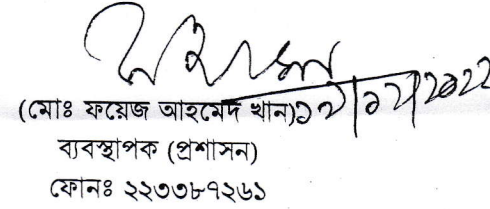 (মোঃ ফয়েজ আহমেদ খান)
ব্যবস্থাপক (প্রশাসন)
ফোনঃ ২২৩৩৮৭২৬১